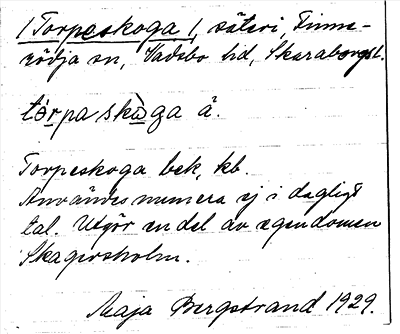 /Torpeskoga/, säteri, Finne-
rödja sn, Vadsbo hd, Skaraborgs l.
tòrpa skò̱ga å.
Torpeskoga bek, kb.
Användes numera ej i dagligt
tal. Utgör en del av egendomen
Skagersholm.
Maja Bergstrand 1929.